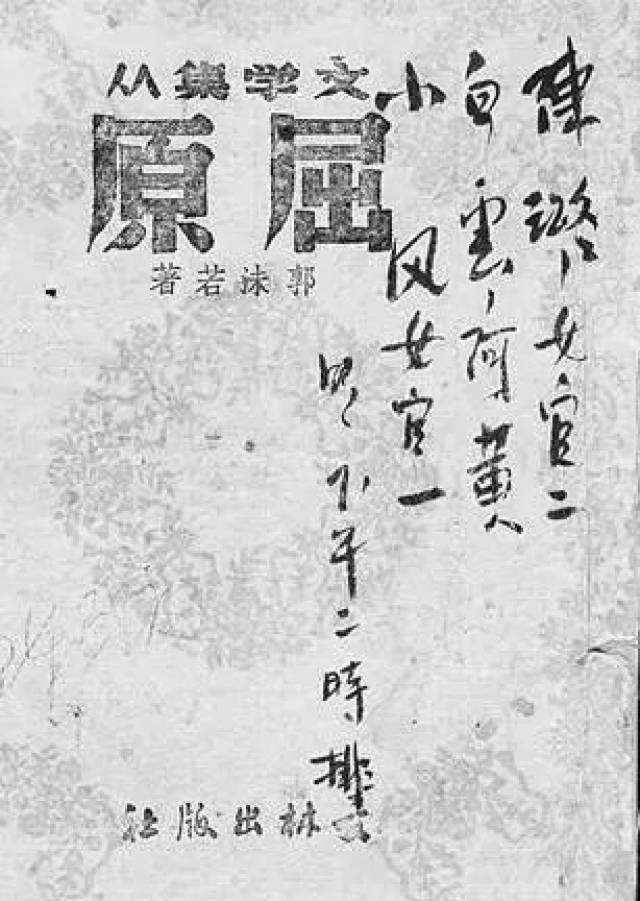 文学集丛
屈原
郭沫若著
陳 女官二
白雲 阿黄
小凤女官一
下午二時排
林出版社